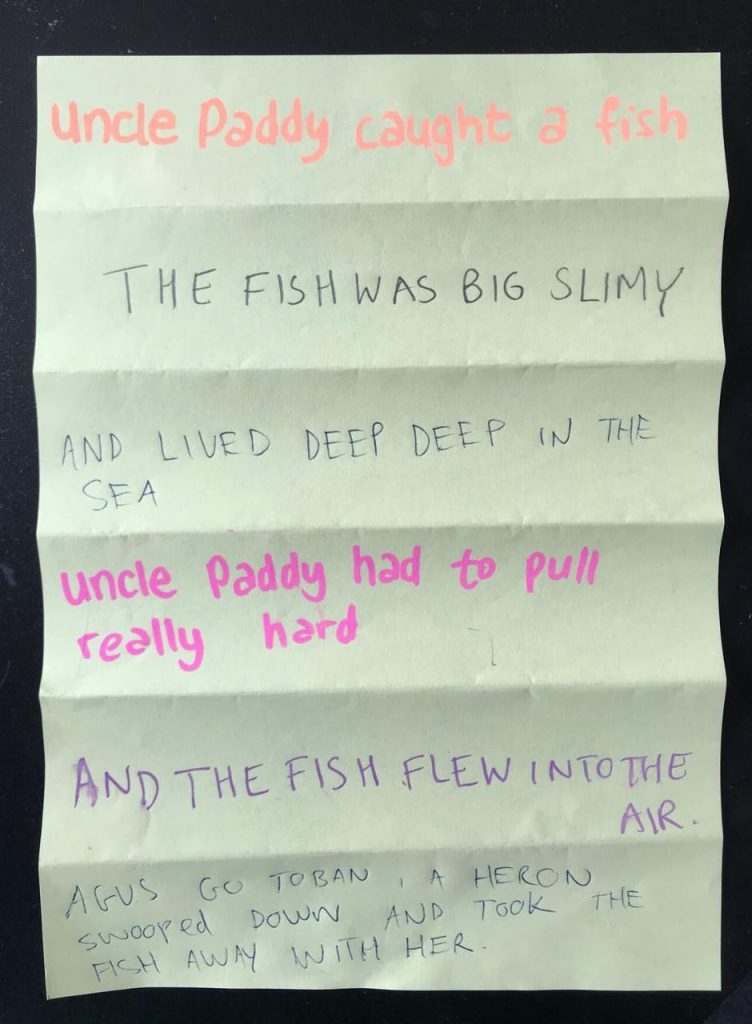 uncle Paddy caught a fish
THE FISH WAS BIG SLIMY
AND LIVED DEEP DEEP IN THE
SEA
uncle Paddy had to pull
really hard
AND THE FISH FLEW INTO THE
AIR.
AGUS GO TOBAN, A HERON
SWOOPed DOWN AND TOOK THE
FISH AWAY WITH HER.